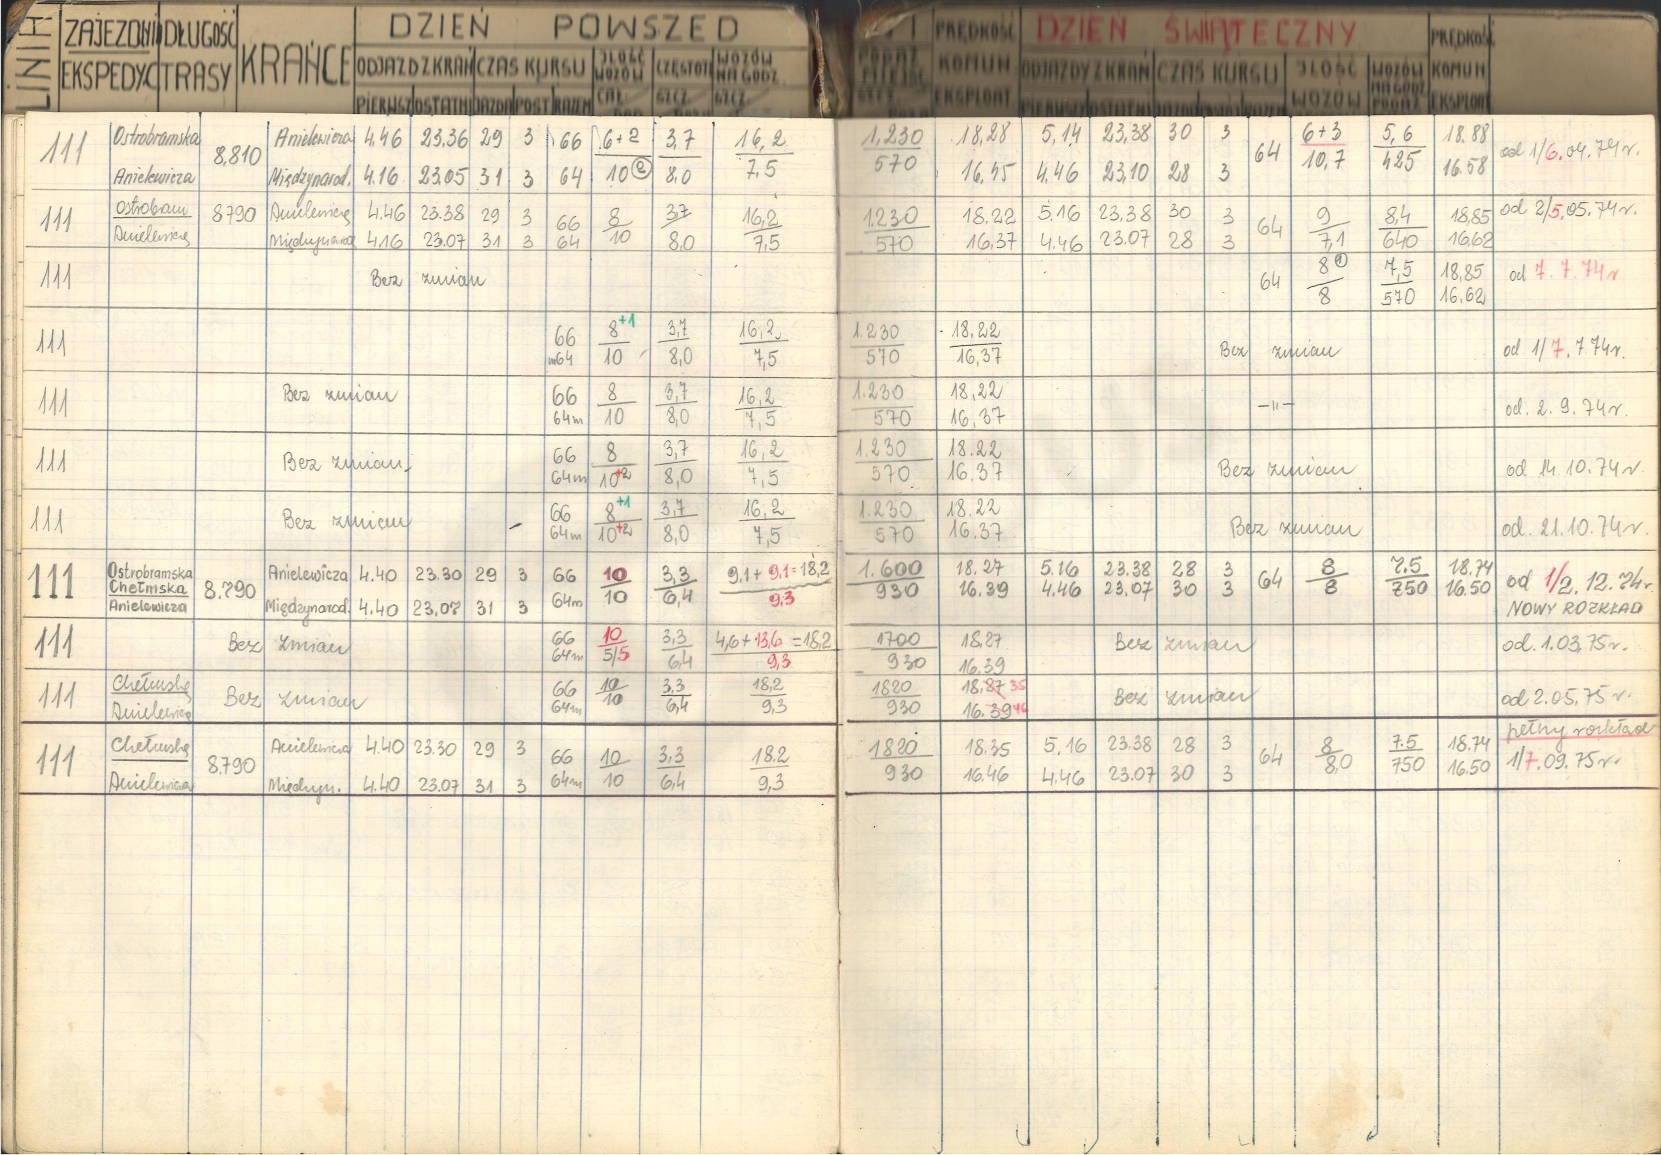 LINIA ZAJEZDNI DŁUGOŚĆ KRAŃCE DZIEŃ POWSZED
EKSPEDYC TRASY ODJAZD Z KRAŃ CZAS KURSU ILOŚĆ WOZÓW CZĘSTOT WOZÓW NA GODZ.
PIERWSZ OSTATNI JAZDA POST RAZEM
PRĘDKOŚĆ KOMUN EKSPLOAT DZIEŃ ŚWIĄTECZNY PRĘDKOŚĆ KOMUN EKSPLOAT
ODJAZDY Z KRAŃ CZAS KURSU ILOŚĆ WOZÓW WOZÓW NA GODZ
PIERWSZ OSTATNI
111 Ostrobramska 8,810 Anielewicza 4.46 23,36 29 3 66 6+2 3,7 16,2 1,230 18,28 5,14 23,38 30 3 64 6+3 5,6 18.88 od 1/6.04.74r.
Anielewicza Międzynarod. 4.16 23,05 31 3 64 10 (2) 8,0 7,5 570 16,45 4.46 23,10 28 3 10,7 425 16.58
111 Ostrobram 8790 Anielewicz 4.46 23.38 29 3 66 8 3,7 16,2 1230 18.22 5,16 23,38 30 3 64 9 8,4 18,85 od 2/5.05.74r.
Anielewicz Międzynarod 4.16 23.07 31 3 64 10 8,0 7,5 570 16,37 4.46 23.07 28 3 7,1 640 16,62
111 Bez zmian 64 8 (1) 7,5 18,85 od 7.7.74r
8 570 16.62
111 66 8 +1 3,7 16,2 1.230 18.22 Bez zmian od 1/7.7 74r.
m64 10 8,0 7,5 570 16,37
111 Bez zmian 66 8 3,7 16,2 1.230 18,22 -"- od. 2.9.74r.
64m 10 8,0 7,5 570 16,37
111 Bez zmian, 66 8 3,7 16,2 1.230 18.22 Bez zmian od 14.10.74r.
64m 10+2 8,0 7,5 570 16.37
111 Bez zmian 66 8 +1 3,7 16,2 1.230 18.22 Bez zmian od. 21.10.74r.
64m 10+2 8,0 7,5 570 16.37
111 Ostrobramska 8.790 Anielewicza 4.40 23.30 29 3 66 10 3,3 9,1 + 9,1 = 18,2 1.600 18.27 5.16 23.38 28 3 64 8 7.5 18.74 od 1/2.12.74r.
Chełmska
Anielewicza Międzynarod. 4.40 23,07 31 3 64m 10 6,4 9,3 930 16.39 4.46 23.07 30 3 8 750 16.50 NOWY ROZKŁAD
111 Bez zmian 66 10 3,3 4,6 + 13,6 = 18,2 1700 18.27 Bez zmian od. 1.03.75r.
64m 5/5 6,4 9,3 930 16.39
111 Chełmską Bez zmian 66 10 3,3 18,2 1820 18,27 35 Bez zmian od 2.05.75r.
Anielewicz 64m 10 6,4 9,3 930 16.39 46
pełny rozkład
111 Chełmską 8.790 Anielewicza 4.40 23.30 29 3 66 10 3,3 18.2 1820 18.35 5,16 23.38 28 3 64 8 7.5 18.74 1/7.09.75r.
Anielewicza Międzyn. 4.40 23.07 31 3 64m 10 6,4 9,3 930 16.46 4.46 23.07 30 3 8,0 750 16.50